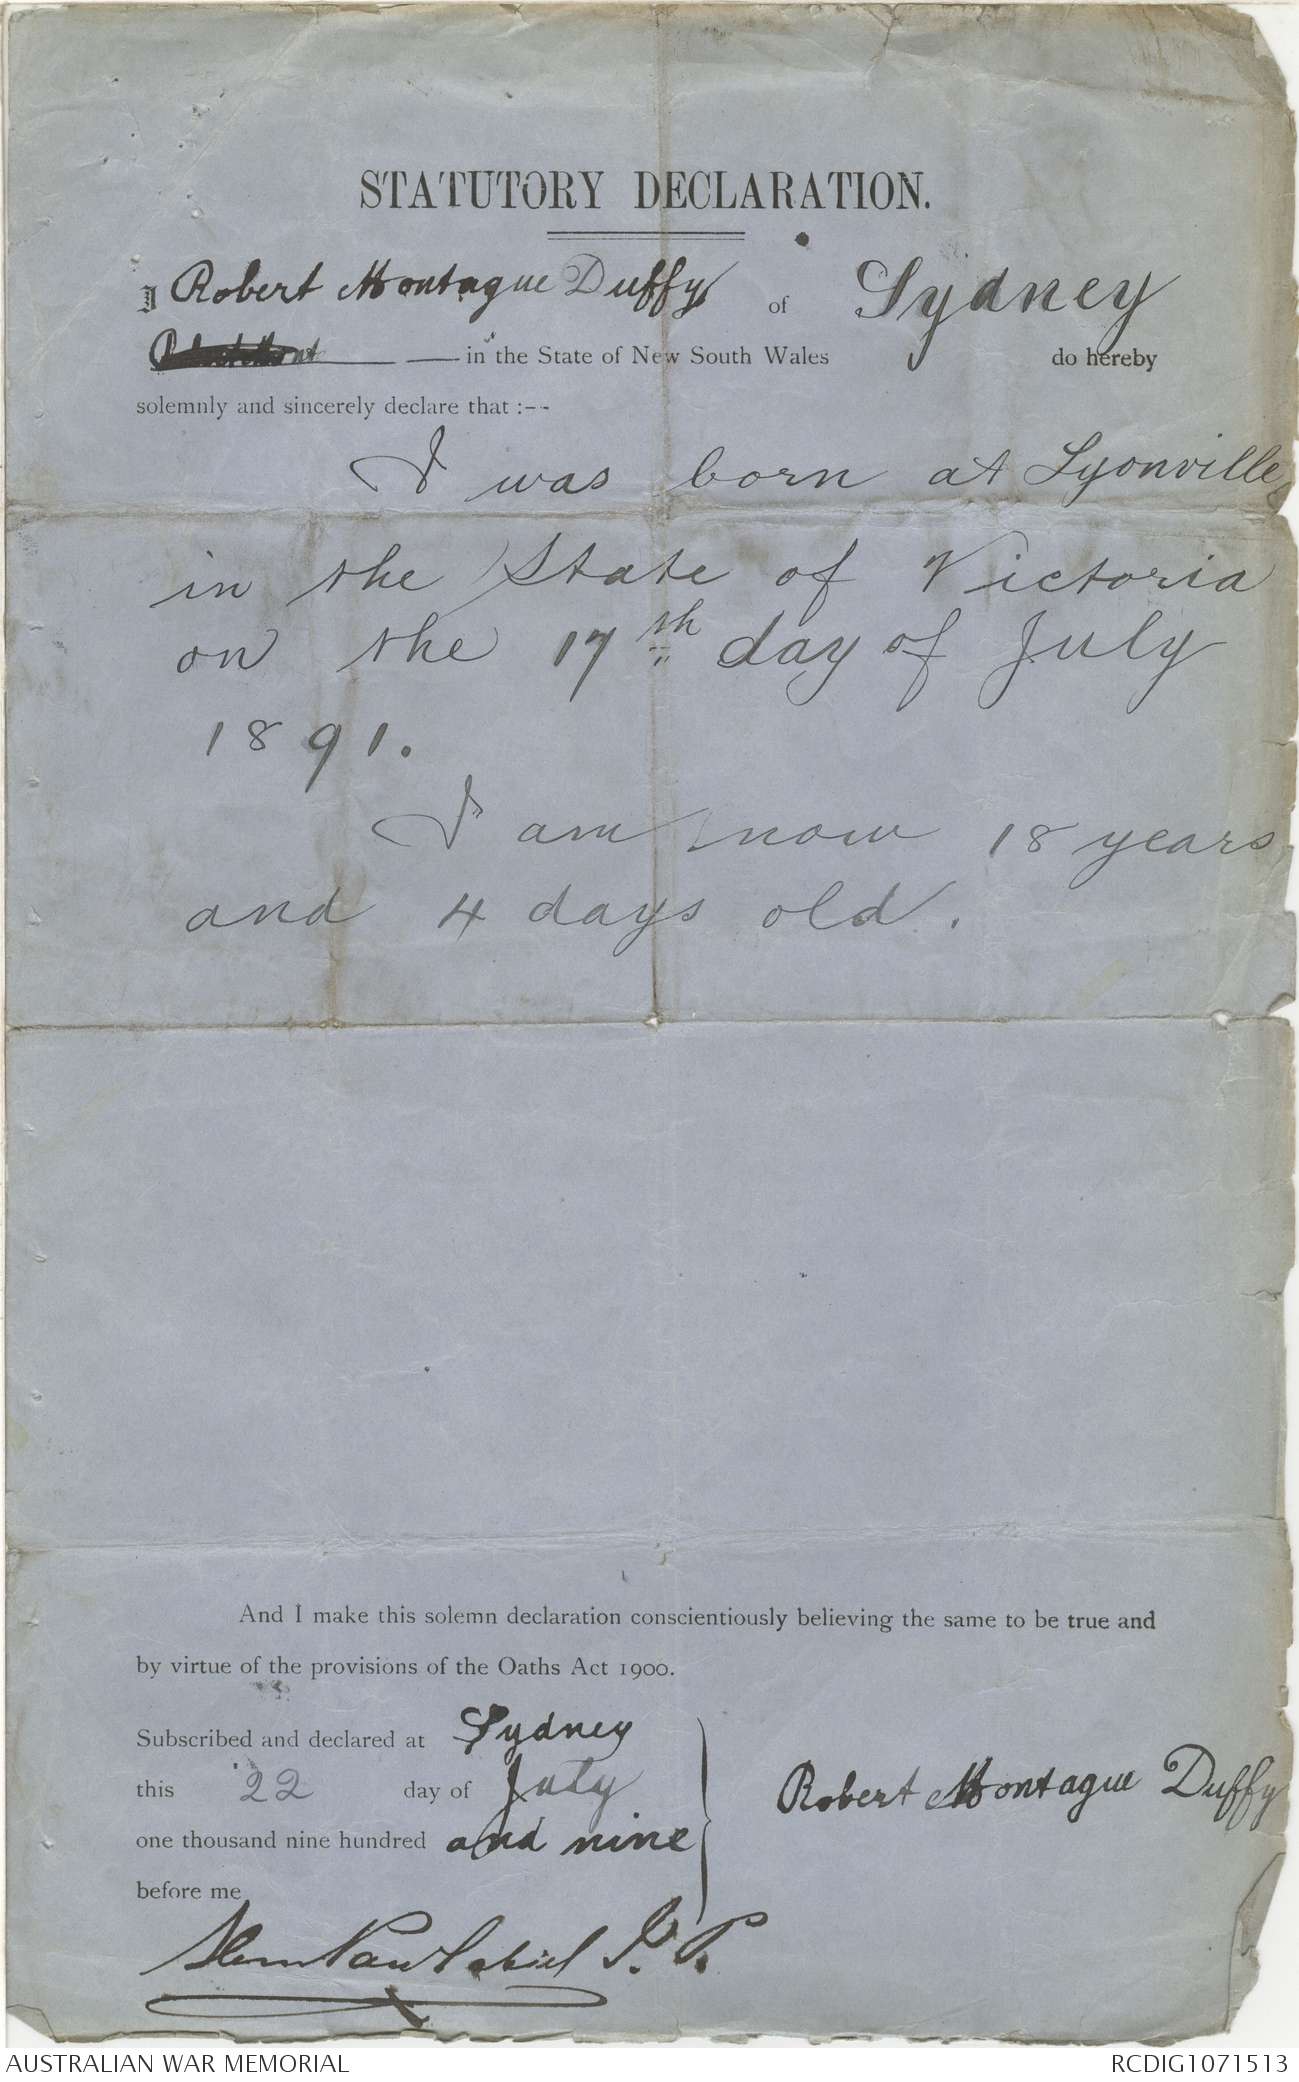 STATUTORY DECLARATION.
I Robert Montague Duffy of Sydney
in the State of New South Wales do hereby
solemnly and sincerely declare that :--
I was born at Lyonville
in the State of Victoria
on the 17th day of July
1891.
I am now 18 years
and 4 days old.
And I make this solemn declaration conscientiously believing the same to be true and
by virtue of the provisions of the Oaths Act 1900.
Subscribed and declared at Sydney
this 22 day of July
one thousand nine hundred and nine
before me
Robert Montague Duffy
J. P.
AUSTRALIAN WAR MEMORIAL
RCDIG1071513